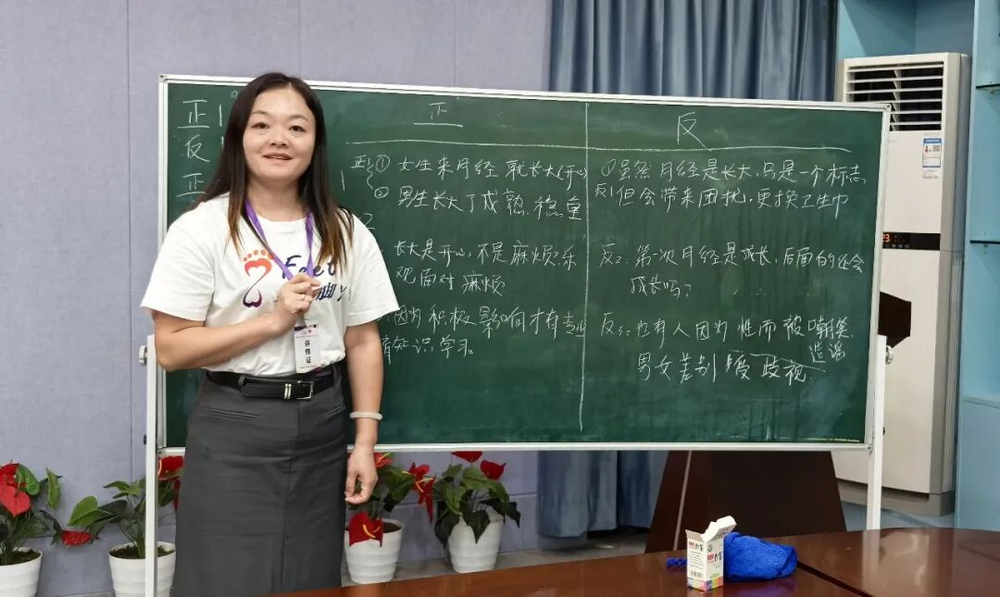 正
反
正
正
正 ① 女生来月经 就长大(开心)
② 男生长大了成熟、稳重
长大是开心,不是麻烦,乐
观面对麻烦
因为积极影响才有
知识学习。
反
① 虽然月经是长大,只是一个标志
反1 但会带来困扰,更换卫生巾
反2: 第一次月经是成长,后面的还会
成长吗?
反3: 也有人因为性而被嘲笑
造谣
男女差别 受歧视
Feet